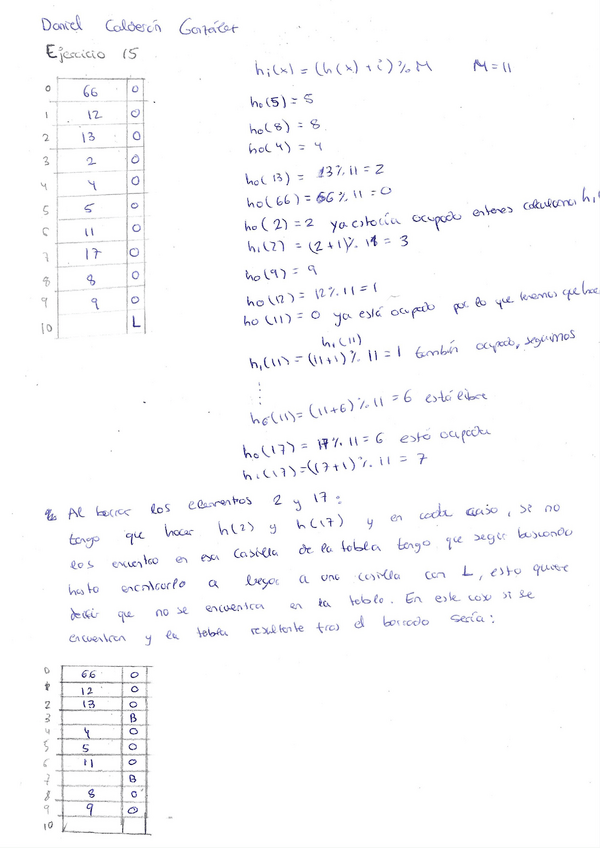 Daniel Calderón González
Ejercicio 15
hi(x) = (h(x) + i) % M M = 11
0 66 0
1 12 0
2 13 0
3 2 0
4 4 0
5 5 0
6 11 0
7 17 0
8 8 0
9 9 0
10 L
h0(5) = 5
h0(8) = 8
h0(4) = 4
h0(13) = 13 % 11 = 2
h0(66) = 66 % 11 = 0
h0(2) = 2 ya estaría ocupado entonces calculamos h1
h1(2) = (2+1) % 11 = 3
h0(9) = 9
h0(12) = 12 % 11 = 1
h0(11) = 0 ya está ocupado por lo que tenemos que hacer
h1(11)
h1(11) = (11+1) % 11 = 1 también ocupado, seguimos
h6(11) = (11+6) % 11 = 6 está libre
h0(17) = 17 % 11 = 6 está ocupada
h1(17) = (17+1) % 11 = 7
Al borrar los elementos 2 y 17:
tengo que hacer h(2) y h(17) y en cada caso, si no
los encuentro en esa casilla de la tabla tengo que seguir buscando
hasta encontrarlo a llegar a una casilla con L, esto quiere
decir que no se encuentra en la tabla. En este caso si se
encuentran y la tabla resultante tras el borrado sería:
0 66 0
1 12 0
2 13 0
3 B
4 4 0
5 5 0
6 11 0
7 B
8 8 0
9 9 0
10